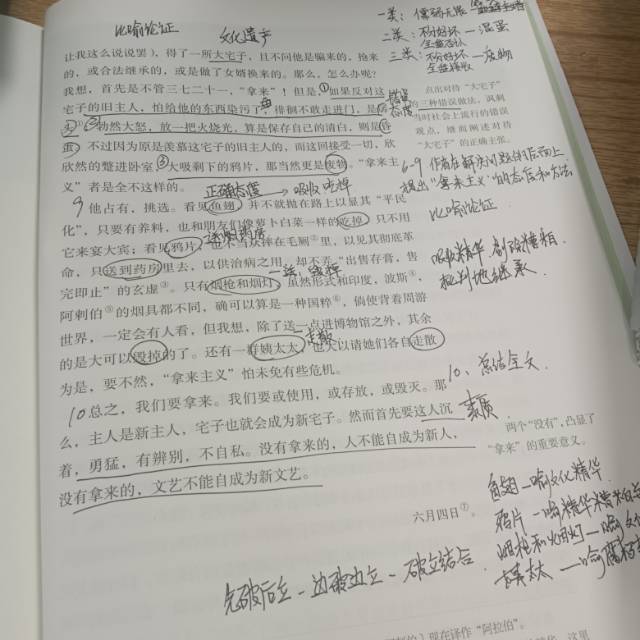 比喻论证 文化遗产
让我这么说说罢），得了一所大宅子，且不问他是骗来的，抢来
的，或合法继承的，或是做了女婿换来的。那么，怎么办呢？
我想，首先是不管三七二十一，“拿来”！但是，如果反对这
宅子的旧主人，怕给他的东西染污了，徘徊不敢走进门，是
勃然大怒，放一把火烧光，算是保存自己的清白，则是
不过因为原是羡慕这宅子的旧主人的，而这回接受一切，欣
欣然的蹩进卧室，大吸剩下的鸦片，那当然更是废物。“拿来主
义”者是全不这样的。
正确态度
9 他占有，挑选。看见鱼翅，并不就抛在路上以显其“平民
化”，只要有养料，也和朋友们像萝卜白菜一样的吃掉，只不用
它来宴大宾；看见鸦片，也不当众摔在毛厕②里，以见其彻底革
命，只送到药房里去，以供治病之用，却不弄“出售存膏，售
完即止”的玄虚③。只有烟枪和烟灯，虽然形式和印度，波斯④，
阿剌伯⑤的烟具都不同，确可以算是一种国粹⑥，倘使背着周游
世界，一定会有人看，但我想，除了送一点进博物馆之外，其余
的是大可以毁掉的了。还有一群姨太太，也大以请她们各自走散
为是，要不然，“拿来主义”怕未免有些危机。
10 总之，我们要拿来。我们要或使用，或存放，或毁灭。那
么，主人是新主人，宅子也就会成为新宅子。然而首先要这人沉
着，勇猛，有辨别，不自私。没有拿来的，人不能自成为新人，
没有拿来的，文艺不能自成为新文艺。
六月四日⑦。
一类：
二类：不分好坏 — 混蛋
全盘否认
三类：不分好坏 — 废物
全盘接收
点出对待“大宅子”
的三种错误做法，讽刺
当时社会上流行的错误
观点，继而阐述对待
“大宅子”的正确主张。
比喻论证
吸收精华，剔除糟粕
批判地继承
10、总结全文
素质
两个“没有”，凸显了
“拿来”的重要意义。
鱼翅—喻文化精华
鸦片—喻精华糟粕
烟枪和烟灯—喻
姨太太—喻
先破后立 — 边破边立 — 破立结合
现在译作“阿拉伯”。